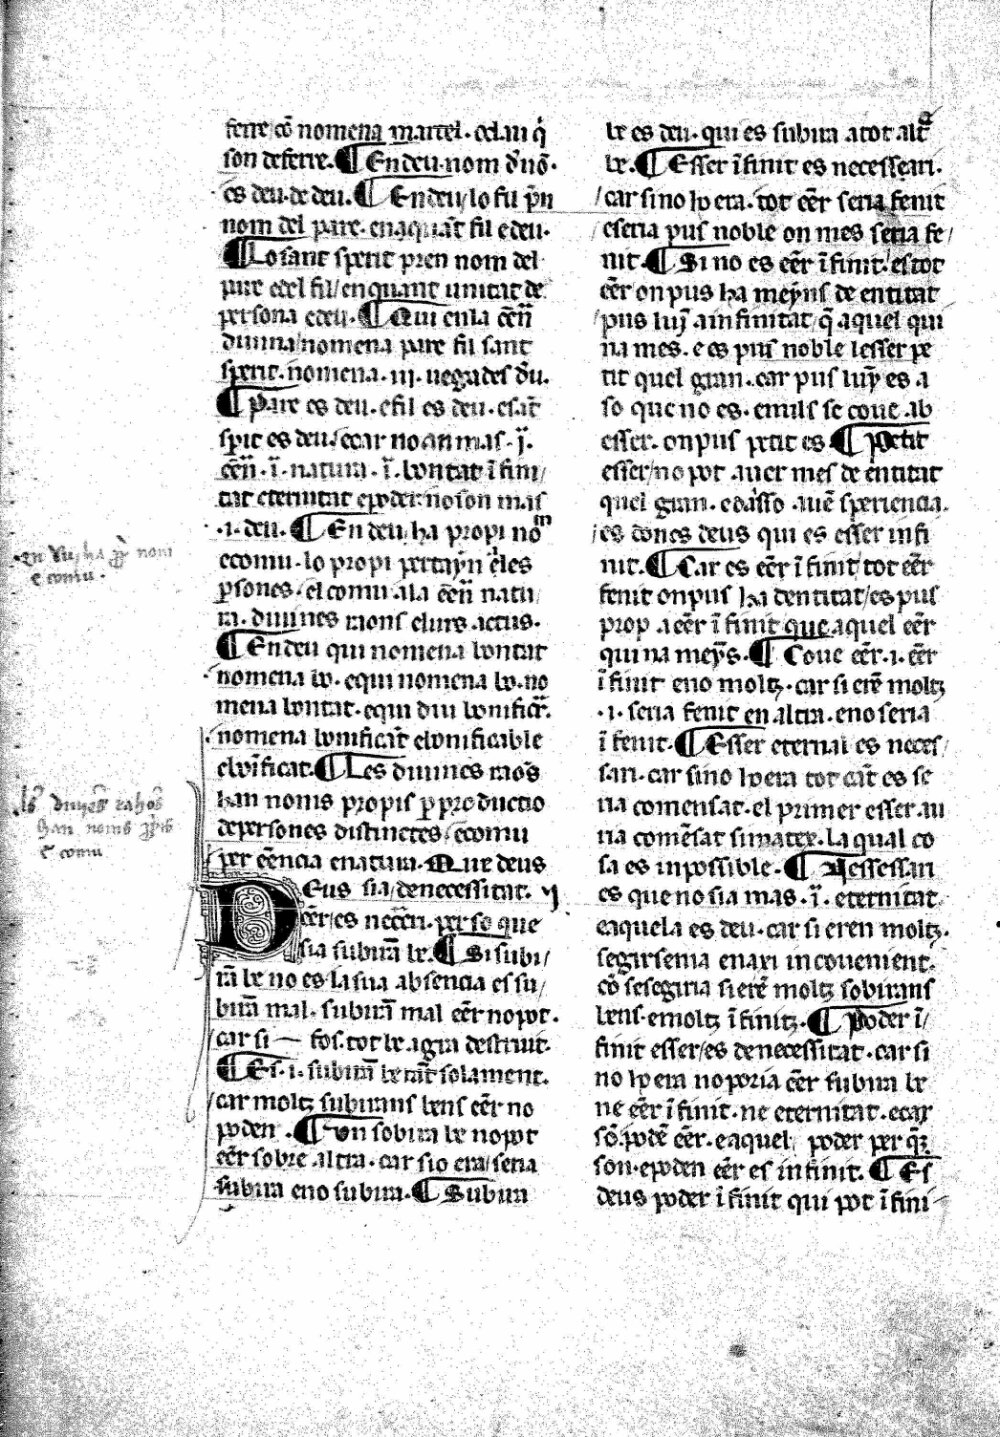 ferre cō nomena martel. celui q̄
son deferre. ¶ En deu. nom d̄ no9.
es deu. de deu. ¶ En deu/ lo fil p̄n
nom del pare. en aquāt fil e deu.
¶ Lo sant sperit pren nom del
pare e del fil/ en quant unitat de
persona e deu. ¶ Qui en la cēn
diuina/ nomena pare fil sant
sperit. nomena .iii. uegades d̄u.
¶ Pare es deu. e fil es deu. e sāt
sp̄it es deu/ e car no an mas .j̄.
cēn .ī. natura .ī. bontat īfini/
tat eternitat e poder: no son mas
.i. deu. ¶ En deu/ ha propi nom
e comu. lo propi pertayn a les
p̄sones. el comu a la cēn natu
ra. diuines raons e lurs actus.
¶ En deu qui nomena bontat
nomena bo. e qui nomena bo. no
mena bontat. e qui diu bonificar.
nomena bonificāt e bonificable
e boīficat. ¶ Les diuines raōs
han noms propis p productio
de persones distinctes/ e comu
per eēncia e natura. Que deus
Deus sia/ de necessitat. vj
eēr/ es neceēri. per so que
sia subirā be. ¶ Si subi/
rā be no es/ la sua absencia es su/
birā mal. subirā mal eēr no pot.
car si — fos. tot be agra destruit.
¶ Es .i. subirā be tāt solament.
car moltz subirans bens eēr no
poden. ¶ Un sobira be no pot
eēr sobre altra. car sio era/ seria
subira e no subira. ¶ Subira
be es deu. qui es subira a tot altre
be. ¶ Esser īfinit es necessari.
car si no ho era. tot eēr seria fenit
e seria pus noble on mes seria fe
nit. ¶ Si no es eēr īfinit. es tot
eēr on pus ha meyns de entitat
pus luy̅ a infinitat/ q̄ aquel qui
na mes. e es pus noble lesser pe
tit quel gran. car pus luy̅ es a
so que no es. e mils se coue ab
esser. on pus petit es ¶ Petit
esser/ no pot auer mes de entitat
quel gran. e daisso auē speriencia.
es dones deus qui es esser infi
nit. ¶ Car es eēr īfinit/ tot eēr
fenit on pus ha dentitat/ es pus
prop a eēr īfinit que aquel eēr
qui na meȳs. ¶ Coue eēr .i. eēr
īfinit e no moltz. car si erē moltz
.i. seria fenit en altra. e no seria
īfenit. ¶ Esser eternal es neces/
sari. car si no ho era tot cāt es se
ria comensat. el primer esser au
ria comēsat si mateix. la qual co
sa es inpossible. ¶ Nessessari
es que no sia mas .ī. eternitat.
e aquela es deu. car si eren moltz.
segirsenia en axi in couenient.
cō se segiria si erē moltz sobirans
bens. e moltz īfinitz. ¶ Poder ī/
finit esser/ es de necessitat. car si
no ho era no poria eēr subira be
ne eēr īfinit. ne eternitat. e car
sō. podē eēr. e aquel poder per q̄
son. e poden eēr es infinit. ¶ Es
deus poder īfinit qui pot īfini
en deu/ ha pp̄ nom
e comu.
les diuyēs rahōs
han noms pp̄is
e comu